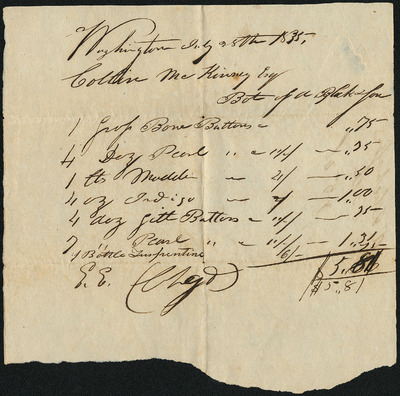 Washington July 28th 1835,
Collin McKinney Esq
Bot of A Blake & Son
1 Gross Bone Buttons " ,,75
4 Doz Pearl " " — ,,25
1 lb Madder " 4/ — ,,50
4 oz Indigo " — 1,00
4 doz Gilt Buttons " — 25
2 " Pearl " " — 1,
1 Bottle Turpentine
E. E. $5,,81
$5,,81